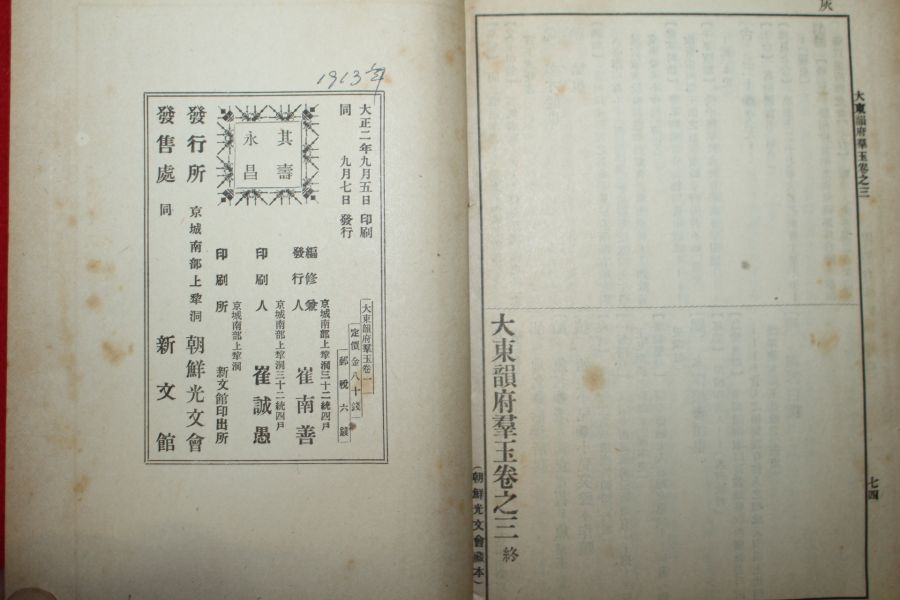 灰
大東韻府羣玉卷之三
七四
大東韻府羣玉卷之三 終
(朝鮮光文會藏本)
1913년
大正二年九月五日 印刷
同 九月七日 發行
其壽
永昌
大東韻府羣玉卷一
定價金八十錢
郵稅六錢
編修兼
發行人
京城南部上犂洞三十二統四戶
崔南善
印刷人
京城南部上犂洞三十二統四戶
崔誠愚
印刷所
京城南部上犂洞
新文館印出所
發行所 京城南部上犂洞 朝鮮光文會
發售處 同 新文館